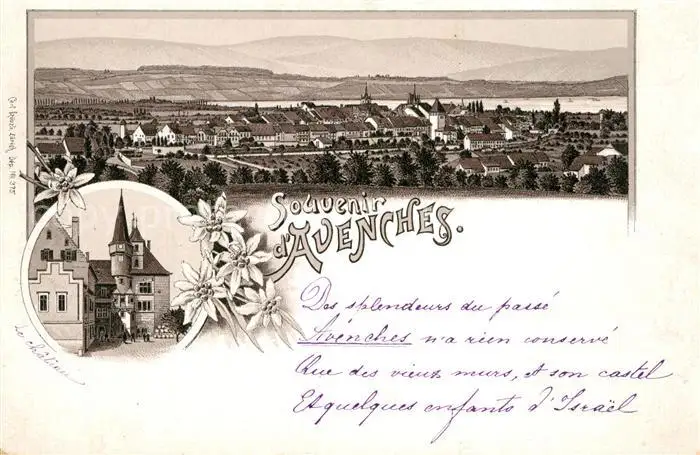 Souvenir
d'AVENCHES.
Des splendeurs du passé
Avenches n'a rien conservé
Que des vieux murs, et son castel
Et quelques enfants d'Israël
Le château